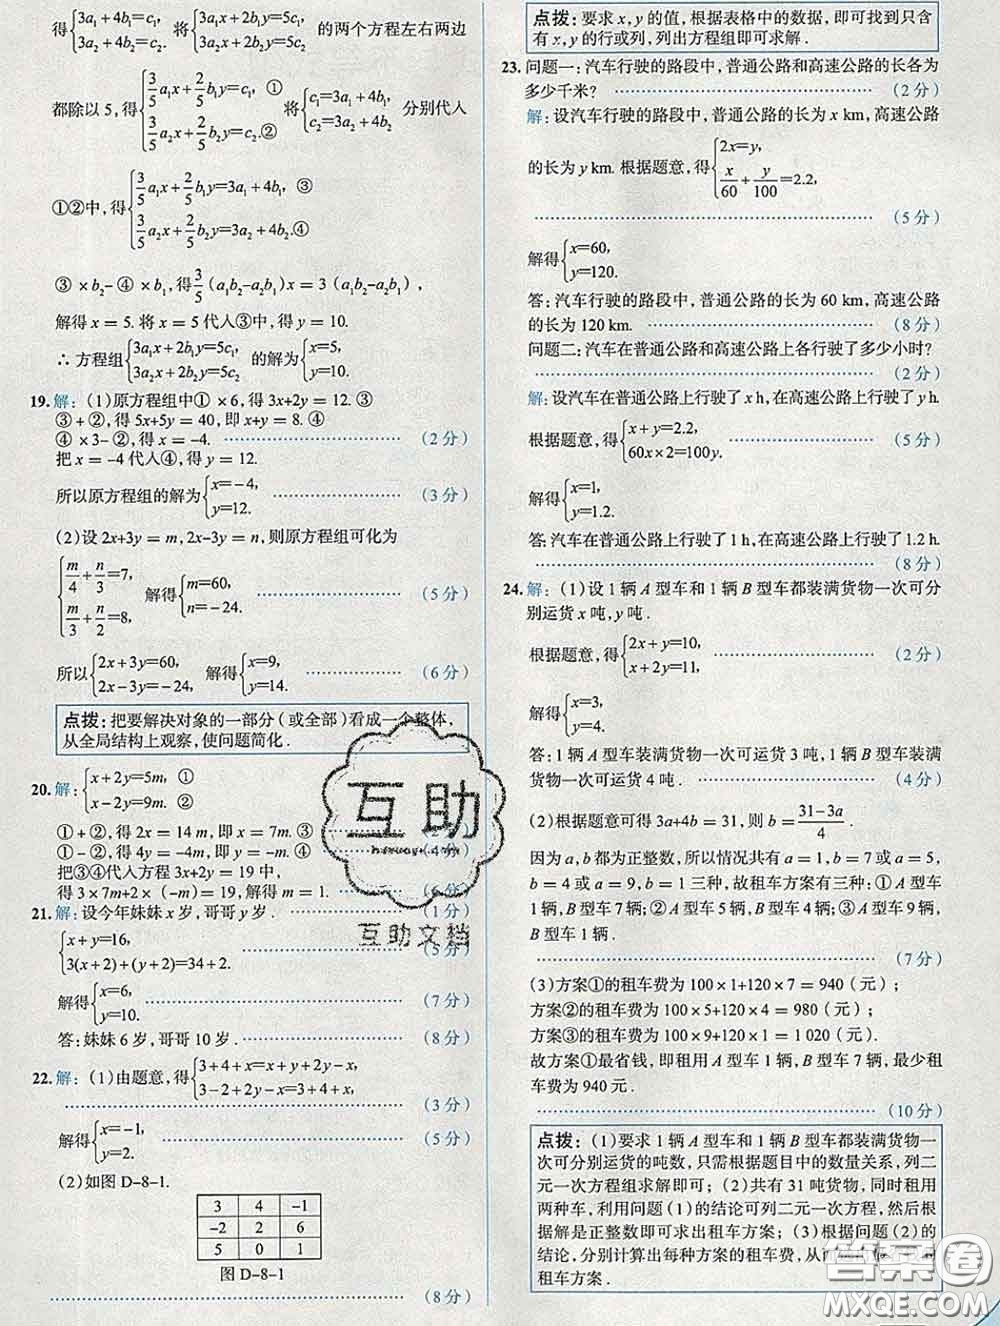 得{3a₁+4b₁=c₁, 3a₂+4b₂=c₂. 将{3a₁x+2b₁y=5c₁, 3a₂x+2b₂y=5c₂ 的两个方程左右两边
都除以 5, 得{3/5 a₁x+2/5 b₁y=c₁, ① 3/5 a₂x+2/5 b₂y=c₂.② 将{c₁=3a₁+4b₁, c₂=3a₂+4b₂ 分别代人
①②中, 得{3/5 a₁x+2/5 b₁y=3a₁+4b₁, ③ 3/5 a₂x+2/5 b₂y=3a₂+4b₂.④
③×b₂-④×b₁, 得3/5(a₁b₂-a₂b₁)x=3(a₁b₂-a₂b₁),
解得 x=5. 将 x=5 代人③中, 得 y=10.
∴ 方程组{3a₁x+2b₁y=5c₁, 3a₂x+2b₂y=5c₂ 的解为{x=5, y=10.
19.解: (1)原方程组中①×6, 得 3x+2y=12. ③
③+②, 得 5x+5y=40, 即 x+y=8. ④
④×3-②, 得 x=-4. (2分)
把 x=-4代人④, 得 y=12.
所以原方程组的解为{x=-4, y=12. (3分)
(2)设 2x+3y=m, 2x-3y=n, 则原方程组可化为
{m/4+n/3=7, m/3+n/2=8, 解得{m=60, n=-24. (5分)
所以{2x+3y=60, 2x-3y=-24, 解得{x=9, y=14. (6分)
点拨: 把要解决对象的一部分(或全部)看成一个整体,
从全局结构上观察, 使问题简化.
20.解:{x+2y=5m, ① x-2y=9m. ②
①+②, 得 2x=14m, 即 x=7m. ③
①-②, 得 4y=-4m, 即 y=-m. ④
把③④代人方程 3x+2y=19 中,
得 3×7m+2×(-m)=19, 解得 m=1. (6分)
21.解: 设今年妹妹 x 岁, 哥哥 y 岁. (1分)
{x+y=16, 3(x+2)+(y+2)=34+2. (5分)
解得{x=6, y=10. (7分)
答: 妹妹 6 岁, 哥哥 10 岁. (8分)
22.解: (1)由题意, 得{3+4+x=x+y+2y-x, 3-2+2y-x=3+4+x, (3分)
解得{x=-1, y=2. (5分)
(2)如图 D-8-1.
3 4 -1
-2 2 6
5 0 1
图 D-8-1
(8分)
点拨: 要求 x, y 的值, 根据表格中的数据, 即可找到只含
有 x, y 的行或列, 列出方程组即可求解.
23.问题一: 汽车行驶的路段中, 普通公路和高速公路的长各为
多少千米? (2分)
解: 设汽车行驶的路段中, 普通公路的长为 x km, 高速公路
的长为 y km. 根据题意, 得{2x=y, x/60+y/100=2.2,
(5分)
解得{x=60, y=120.
答: 汽车行驶的路段中, 普通公路的长为 60 km, 高速公路
的长为 120 km. (8分)
问题二: 汽车在普通公路和高速公路上各行驶了多少小时?
(2分)
解: 设汽车在普通公路上行驶了 x h, 在高速公路上行驶了 y h.
根据题意, 得{x+y=2.2, 60x×2=100y. (5分)
解得{x=1, y=1.2.
答: 汽车在普通公路上行驶了 1 h, 在高速公路上行驶了 1.2 h.
(8分)
24.解: (1)设 1 辆 A 型车和 1 辆 B 型车都装满货物一次可分
别运货 x 吨, y 吨.
根据题意, 得{2x+y=10, x+2y=11, (2分)
解得{x=3, y=4.
答: 1 辆 A 型车装满货物一次可运货 3 吨, 1 辆 B 型车装满
货物一次可运货 4 吨. (4分)
(2)根据题意可得 3a+4b=31, 则 b=(31-3a)/4.
因为 a, b 都为正整数, 所以情况共有 a=1, b=7 或 a=5,
b=4 或 a=9, b=1 三种, 故租车方案有三种: ①A 型车
1辆, B 型车 7 辆; ②A 型车 5 辆, B 型车 4 辆; ③A 型车 9 辆,
B 型车 1 辆.
(7分)
(3)方案①的租车费为 100×1+120×7=940(元);
方案②的租车费为 100×5+120×4=980(元);
方案③的租车费为 100×9+120×1=1 020(元).
故方案①最省钱, 即租用 A 型车 1 辆, B 型车 7 辆, 最少租
车费为 940 元.
(10分)
点拨: (1)要求 1 辆 A 型车和 1 辆 B 型车都装满货物一
次可分别运货的吨数, 只需根据题目中的数量关系, 列二
元一次方程组求解即可; (2)共有 31 吨货物, 同时租用
两种车, 利用问题(1)的结论可列二元一次方程, 然后根
据解是正整数即可求出租车方案; (3)根据问题(2)的
结论, 分别计算出每种方案的租车费, 从
租车方案.
互助
互助文档
答案圈
MXQE.COM